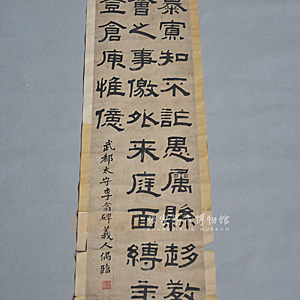 暴寡知不詐愚屬縣趍教
會之事儌外來庭面縛
登倉庾惟億
武都太守李翕碑義人偶臨
博物館
MUSEUM